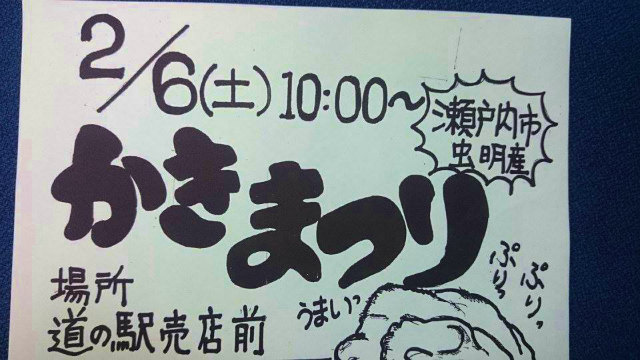 2/6(土)10:00~
瀬戸内市
虫明産
かきまつり
場所
道の駅売店前
うまいっ
ぷりっ
ぷりっ